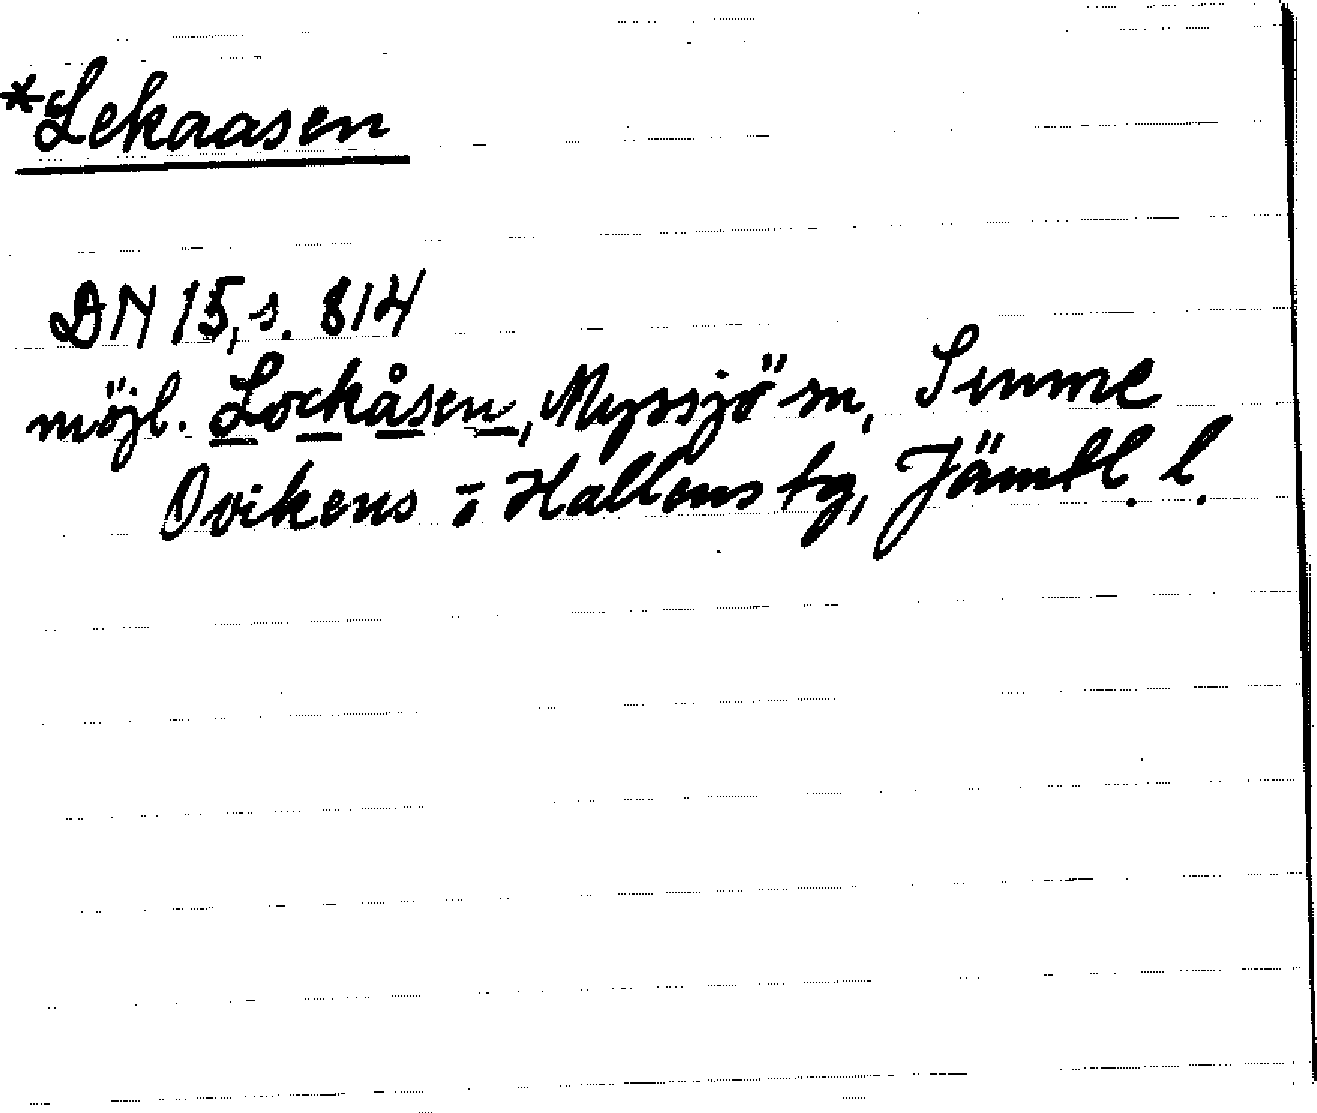 *Lekaasen
DN 15, s. 814
möjl. Lockåsen, Myssjö sn,
Ovikens o Hallens tg, Jämtl. l.